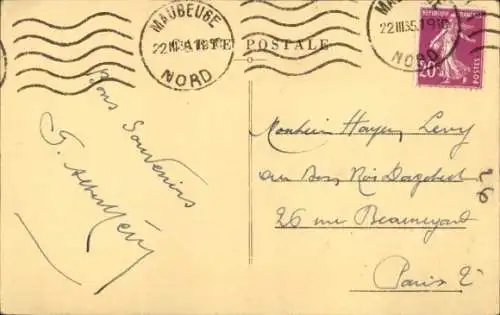 MAUBEUGE
22 III 35 19
NORD
CARTE POSTALE
MAUBEUGE
22 III 35 19
NORD
RÉPUBLIQUE FRANÇAISE
20c
POSTES
Bons Souvenirs
Monsieur Hayem Levy
au Bon Roi Dagobert
26 rue Beauregard
Paris 2e
26